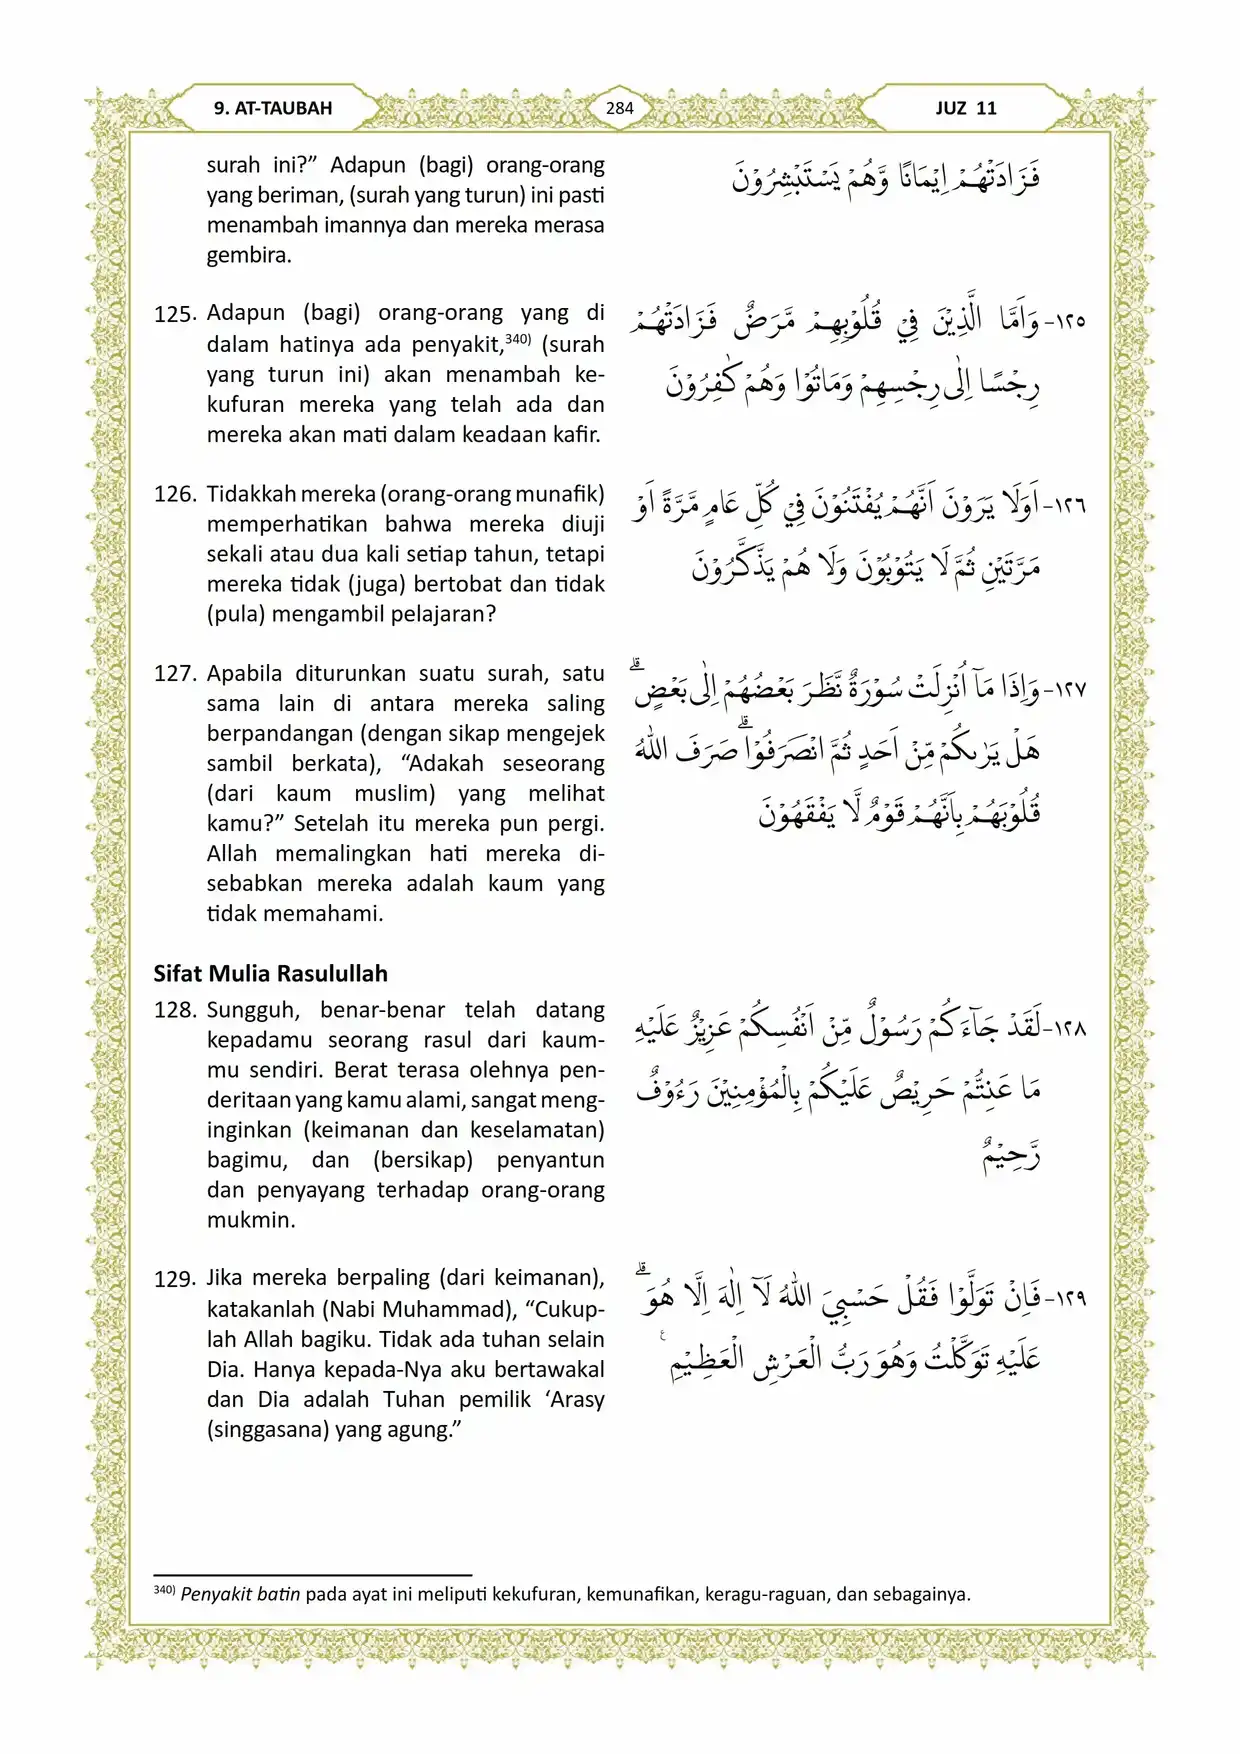 9. AT-TAUBAH
284
JUZ 11
surah ini?” Adapun (bagi) orang-orang
yang beriman, (surah yang turun) ini pasti
menambah imannya dan mereka merasa
gembira.
فَزَادَتْهُمْ اِيْمَانًا وَّهُمْ يَسْتَبْشِرُوْنَ
125. Adapun (bagi) orang-orang yang di
dalam hatinya ada penyakit,340) (surah
yang turun ini) akan menambah ke-
kufuran mereka yang telah ada dan
mereka akan mati dalam keadaan kafir.
١٢٥- وَاَمَّا الَّذِيْنَ فِيْ قُلُوْبِهِمْ مَّرَضٌ فَزَادَتْهُمْ
رِجْسًا اِلٰى رِجْسِهِمْ وَمَاتُوْا وَهُمْ كٰفِرُوْنَ
126. Tidakkah mereka (orang-orang munafik)
memperhatikan bahwa mereka diuji
sekali atau dua kali setiap tahun, tetapi
mereka tidak (juga) bertobat dan tidak
(pula) mengambil pelajaran?
١٢٦- اَوَلَا يَرَوْنَ اَنَّهُمْ يُفْتَنُوْنَ فِيْ كُلِّ عَامٍ مَّرَّةً اَوْ
مَرَّتَيْنِ ثُمَّ لَا يَتُوْبُوْنَ وَلَا هُمْ يَذَّكَّرُوْنَ
127. Apabila diturunkan suatu surah, satu
sama lain di antara mereka saling
berpandangan (dengan sikap mengejek
sambil berkata), “Adakah seseorang
(dari kaum muslim) yang melihat
kamu?” Setelah itu mereka pun pergi.
Allah memalingkan hati mereka di-
sebabkan mereka adalah kaum yang
tidak memahami.
١٢٧- وَاِذَا مَآ اُنْزِلَتْ سُوْرَةٌ نَّظَرَ بَعْضُهُمْ اِلٰى بَعْضٍۗ
هَلْ يَرٰىكُمْ مِّنْ اَحَدٍ ثُمَّ انْصَرَفُوْاۗ صَرَفَ اللّٰهُ
قُلُوْبَهُمْ بِاَنَّهُمْ قَوْمٌ لَّا يَفْقَهُوْنَ
Sifat Mulia Rasulullah
128. Sungguh, benar-benar telah datang
kepadamu seorang rasul dari kaum-
mu sendiri. Berat terasa olehnya pen-
deritaan yang kamu alami, sangat meng-
inginkan (keimanan dan keselamatan)
bagimu, dan (bersikap) penyantun
dan penyayang terhadap orang-orang
mukmin.
١٢٨- لَقَدْ جَاۤءَكُمْ رَسُوْلٌ مِّنْ اَنْفُسِكُمْ عَزِيْزٌ عَلَيْهِ
مَا عَنِتُّمْ حَرِيْصٌ عَلَيْكُمْ بِالْمُؤْمِنِيْنَ رَءُوْفٌ
رَّحِيْمٌ
129. Jika mereka berpaling (dari keimanan),
katakanlah (Nabi Muhammad), “Cukup-
lah Allah bagiku. Tidak ada tuhan selain
Dia. Hanya kepada-Nya aku bertawakal
dan Dia adalah Tuhan pemilik ‘Arasy
(singgasana) yang agung.”
١٢٩- فَاِنْ تَوَلَّوْا فَقُلْ حَسْبِيَ اللّٰهُ لَآ اِلٰهَ اِلَّا هُوَۗ
عَلَيْهِ تَوَكَّلْتُ وَهُوَ رَبُّ الْعَرْشِ الْعَظِيْمِ ࣖ
340) Penyakit batin pada ayat ini meliputi kekufuran, kemunafikan, keragu-raguan, dan sebagainya.